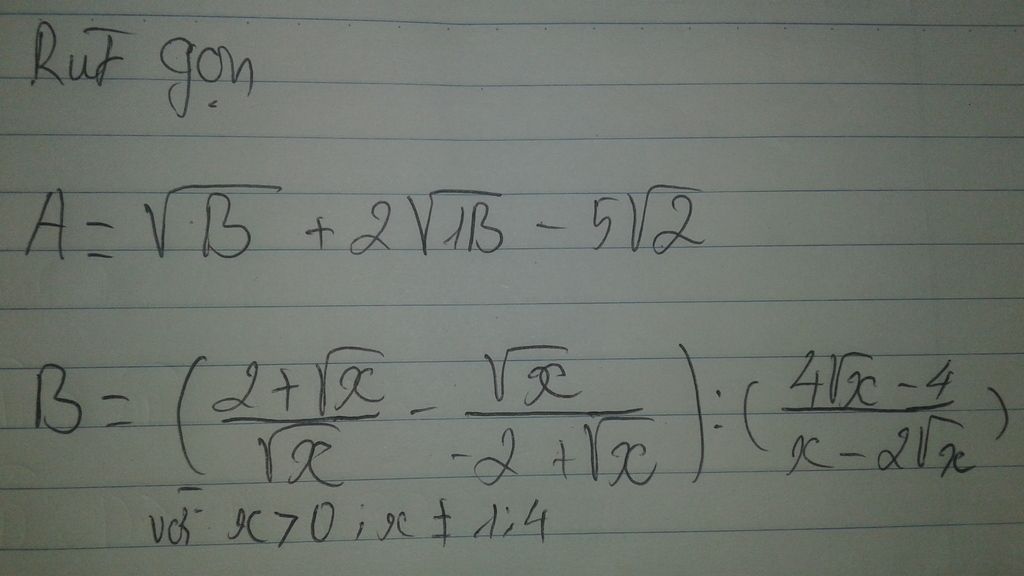 Rút gọn
A = √8 + 2√18 - 5√2
B = ( (2+√x)/√x - √x/(-2+√x) ) : ( (4√x - 4)/(x - 2√x) )
với x > 0 ; x ≠ 1; 4